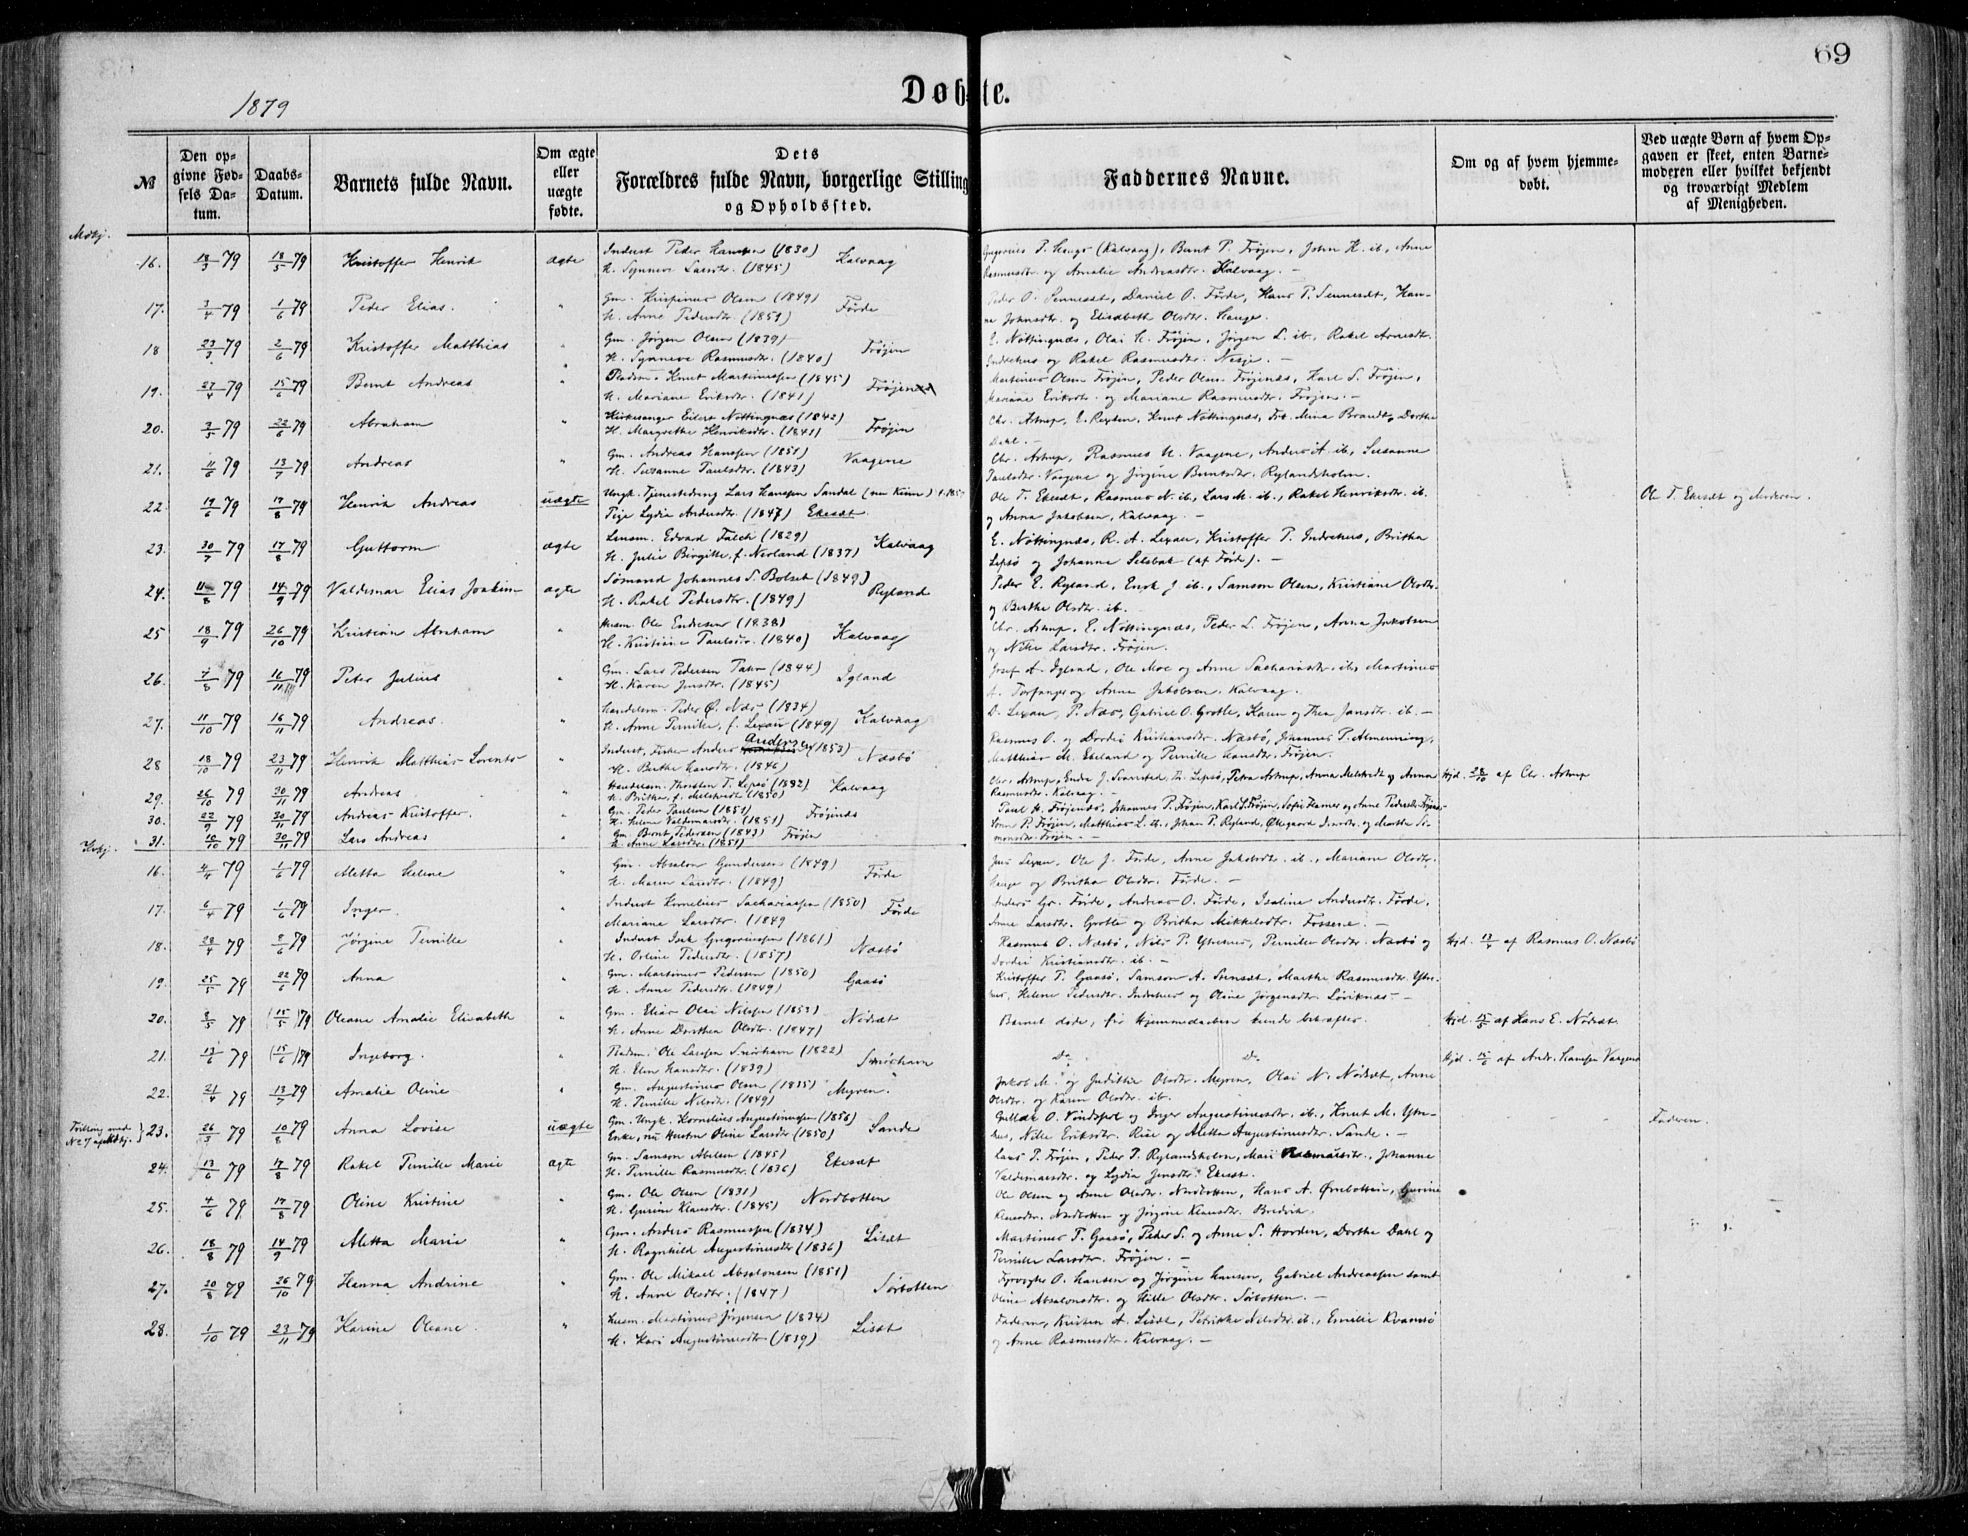 69
Døbte.
1879
№
Den opgivne Fødsels Datum.
Daabs-Datum.
Barnets fulde Navn.
Om ægte eller uægte fødte.
Dets Forældres fulde Navn, borgerlige Stilling og Opholdssted.
Faddernes Navne.
Om og af hvem hjemmedøbt.
Ved uægte Børn af hvem Opgaven er skeet, enten Barnemoderen eller hvilket bekjendt og troværdigt Medlem af Menigheden.
Mskj.
16. 18/3 79 18/5 79 Kristoffer Henrik ægte Inderst Peder Hansen (1830) Kalvaag
H. Synneve Larsdtr. (1845)
Hauge (Kalvaag), Bernt P. Frøjen, John H. ib, Anne
Rasmusdtr. og Amalie Andreasdtr. Kalvaag. —
17. 3/4 79 1/6 79 Peder Elias. " Gm. Kristinus Olsen (1849) Førde
H. Anne Pedersdtr. (1851)
Peder O. Sennesæt, Daniel O. Førde, Hans P. Sennesæt, Han-
ne Johnsdtr. og Elisabeth Olsdtr. Hauge.
18 23/3 79 2/6 79 Kristoffer Matthias " Gm. Jörgen Olsen (1839) Frøjen
H. Synneve Rasmusdtr. (1840)
E. Nöttingnæs, Olai H. Frøjen, Jörgen L. ib., Rakel Arnesdtr.
Indrehus og Rakel Rasmusdtr. Nesje. —
19. 27/4 79 15/6 79 Bernt Andreas " Knut Martinussen (1845) Frøjen
H. Mariane Eriksdtr. (1841)
Martinus Olsen Frøjen, Peder Olsen Frøjenæs, Karl S. Frøjen,
Mariane Eriksdtr. og Mariane Rasmusdtr. Frøjen. —
20. 3/5 79 22/6 79 Abraham " Kirkesanger Eilert Nöttingnæs (1842) Frøjen
H. Margrethe Henriksdtr. (1841)
Chr. Astrup, E. Rexten, Knut Nöttingnæs, Frk. Mina Brandt og Dorthe
Dahl. —
21. 11/6 79 13/7 79 Andreas " Gm. Andreas Hanssen (1851) Vaagene
H. Susanne Paulsdtr. (1843)
Chr. Astrup, Rasmus H. Vaagene, Anders A. ib, Susanne
Paulsdtr. Vaagene og Jörgine Berntsdtr. Rylandsholm.
22. 17/6 79 17/8 79 Henrik Andreas uægte Ungk. Tjenestedreng Lars Hanssen Sandal (nu Kinn)
Pige Lydia Andersdtr. (1847) Ekesæt
Ole T. Ekesæt, Rasmus N. ib., Lars M. ib., Rakel Henriksdtr. ib.
og Anna Jakobsen, Kalvaag. —
Ole T. Ekesæt og Moderen.
23. 30/7 79 17/8 79 Guttorm ægte Lensm. Edvard Falch (1829) Kalvaag
H. Julie Birgitte, f. Nerland (1837)
E. Nöttingnæs, R. A. Lexau, Kristoffer T. Indrehus, Britha
Lepsö og Johanne Selsbak (af Førde). —
24. 11/8 79 14/9 79 Valdemar Elias Joakim ægte Sømand Johannes S. Bolset (1849) Ryland
H. Rakel Pedersdtr. (1849)
Peder E. Ryland, Enok J. ib., Samson Olsen, Kristiane Olsdtr.
og Berthe Olsdtr. ib.
25 18/9 79 26/10 79 Kristian Abraham " Husm. Ole Endresen (1838) Kalvaag
H. Kristiane Paulsdtr. (1840)
Chr. Astrup, E. Nöttingnæs, Peder L. Frøjen, Anna Jakobsen
og Nikke Larsdtr. Frøjen.
26. 7/8 79 16/11 79 Peter Julius " Gm. Lars Pedersen (1844) Igland
H. Karen Jensdtr. (1845)
Josef A. Igland, Ole Moe og Anne Sachariasdtr. ib., Martinus
Torfanger og Anna Jakobsen. Kalvaag.
27. 11/10 79 16/11 79 Andreas. " Handelsm. Peder Ø. Næs (1834) Kalvaag
H. Anne Pernille, f. Lexau (1849)
D. Lexau, P. Næs, Gabriel O. Grotle, Karen og Thea Jansdtr. ib. —
28 18/10 79 23/11 79 Henrik Matthias Lorents " Inderst, Fisker Anders Andersen (1853) Næsbö
H. Berthe Hansdtr. (1846)
Rasmus O. og Dordei Kristiansdtr. Næsbö, Johannes P. Almenning,
Matthias M. Ekeland og Pernille Hansdtr. Frøjen.
29. 26/10 79 30/11 79 Andreas " Handelsm. Thorsten T. Lepsö (1832) Kalvaag
H. Britha, f. Melstvedt (1850)
Chr. Astrup, Endre J. Svarstad, Th. Lepsö, Petra Astrup, Anna Melstvedt og Anna
Rasmusdtr. Kalvaag. —
Hjd. 28/10 af Chr. Astrup
30. 22/9 79 30/11 79 Andreas Kristoffer. " Gm. Peder Paulsen (1851) Frøjenæs
H. Helene Valdemarsdtr. (1851)
Paul H. Frøjenæs, Johannes P. Frøjen, Karl S. Frøjen, Sofie Hamer og Anne Pedersdtr.
31. 10/10 79 30/11 79 Lars Andreas " Gm. Bernt Pedersen (1843) Frøjen
H. Anne Larsdtr. (1851)
P. Frøjen, Matthias L. ib., Johan P. Ryland, og Marthe Si-
monsdtr. Frøjen. —
Kvkj.
16. 4/4 79 1/6 79 Aletta Helene " Gm. Absalon Gundersen (1849) Førde
H. Maren Larsdtr. (1849)
Jens Lexau, Ole J. Førde, Anne Jakobsdtr. ib., Mariane Olsdtr.
Hauge og Britha Olsdtr. Førde. —
17. 6/4 79 1/6 79 Inger. " Inderst Kornelius Sachariassen (1850) Førde
Mariane Larsdtr. (1849
Anders Gr. Førde, Andreas O. Førde, Iseline Andersdtr. Førde,
Anne Larsdtr. Grotle og Britha Mikkelsdtr. Fossene. —
18. 28/4 79 2/6 79 Jörgine Pernille " Inderst Gregoriussen (1861) Næsbö
H. Oline Pedersdtr. (1857)
Rasmus O. Næsbö, Nils P. Ytrehus, Pernille Olsdtr. Næsbö og
Dordei Kristiansdtr. ib. —
Hjd. af Rasmus O. Næsbö
19. 25/5 79 22/6 79 Anna " Gm. Martinus Pedersen (1850) Gaasö
H. Anne Pedersdtr. (1849)
Kristoffer T. Gaasö, Samson A. Stensæt, Marthe Rasmusdtr. Ytre-
hus, Helene Pedersdtr. Indrehus og Oline Jörgensdtr. Löviknæs —
20. 8/5 79 (15/5) 79 Oleane Amalie Elisabeth " Gm. Elias Olai Nilssen (1853) Nödsæt
H. Anne Dorthea Olsdtr. (1847)
Barnet døde, før Hjemmedaaben kunde bekræftes.
Hjd. 15/5 af Hans E. Nödsæt.
21. 13/6 79 (15/6) 79 Ingeborg. " Ole Larssen Smörhavn (1822) Smörhavn
H. Elen Hansdtr. (1839)
Do Do
Hjd. 15/6 af Andr. Hanssen Vaagene
22. 21/4 79 13/7 79 Amalie Oline " Gm. Augustinus Olsen (1835) Myren.
H. Pernille Nilsdtr. (1849)
Jakob M. og Judithe Olsdtr. Myren, Olai N. Nödsæt, Anne
Olsdtr. og Karen Olsdtr. ib.
Tvilling med
23. 26/3 79 10/8 79 Anna Lovise uægte Gm. Ungk. Kornelius Augustinussen (1856) Sande
Enke, nu Oline Larsdtr. (1850)
O. og Inger Augustinusdtr. ib., Knut M. Ytre-
hus, Nikke Eriksdtr. Rise og Aletta Augustinusdtr. Sande. —
Faderen.
24. 13/6 79 17/8 79 Rakel Pernille Marie ægte Gm. Samson Abelsen (1845) Ekesæt
H. Pernille Rasmusdtr. (1836)
Lars P. Frøjen, Peder P. Rylandsholm, Mari Rasmusdtr., Johanne
Valdemarsdtr. og Lydia Jensdtr. Ekesæt.
25. 4/6 79 17/8 79 Oline Kristine " Gm. Ole Olsen (1831) Nordbotten
H. Gurine Klausdtr. (1845)
Ole Olsen og Anne Olsdtr. Nordbotten, Hans A. Ørnbotten, Gurine
Klausdtr. Nordbotten og Jörgine Klausdtr. Bredvik.
26. 18/8 79 14/9 79 Aletta Marie " Gm. Anders Rasmussen (1834) Lisæt
H. Ragnhild Augustinusdtr (1836)
Martinus P. Gaasö, Peder S. og Anne S. Horden, Dorthe Dahl og
Pernille Larsdtr. Frøjen. —
27. 20/8 79 26/10 79 Hanna Andrine " Gm. Ole Mikael Absalonsen (1851) Sörbotten
H. Anne Olsdtr. (1847)
Fyrvogter O. Hansen og Jörgine Hansen, Gabriel Andreassen samt
Oline Absalonsdtr. og Hille Olsdtr. Sörbotten. —
28. 1/10 79 23/11 79 Karine Oleane. " Husm. Martinus Jörgensen (1834) Lisæt
H. Kari Augustinusdtr (1839)
Faderen, Kristen A. Lisæt, Petrikke Nilsdtr. ib., Emilie Kvamsö
og Anne Rasmusdtr. Kalvaag. —